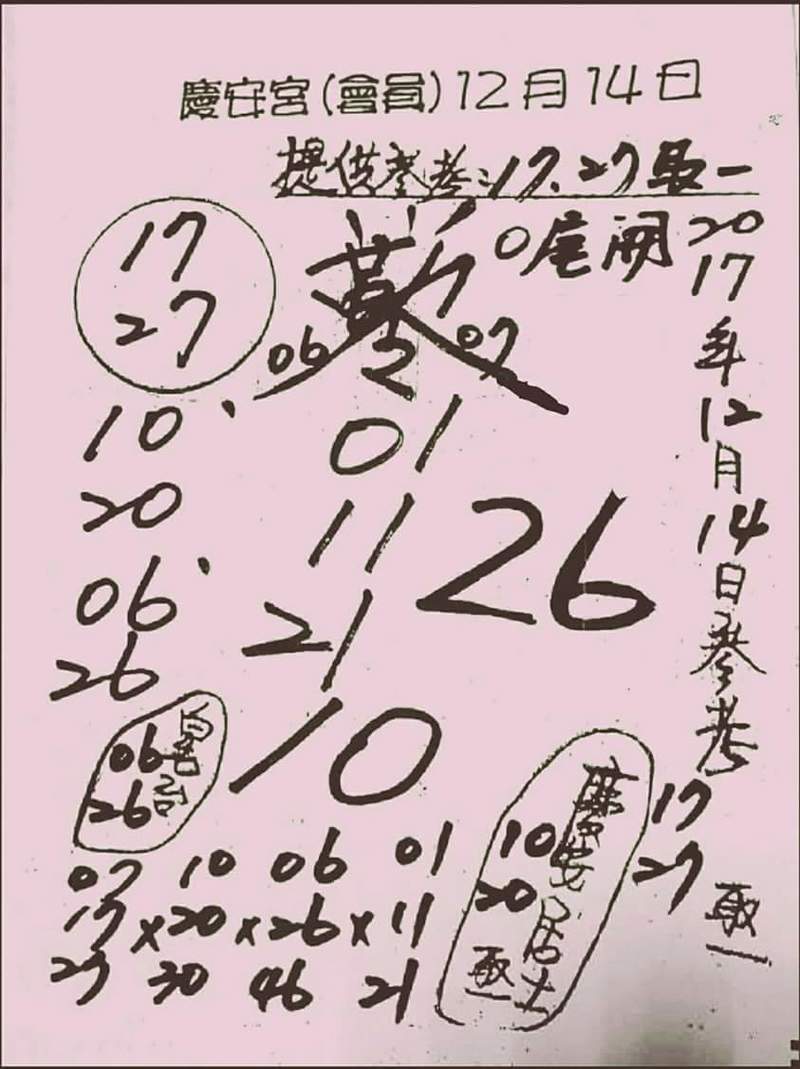 慶安宮(會員)12月14日
提供參考:17、27取一
0尾開
2017年12月14日參考
17
27
取一
17
27
06
07
2
10
20
06
26
01
11
21
26
10
06
26
07 10 06 01
17×20×26×11
27 30 46 21
慶安居士
10
20
取一